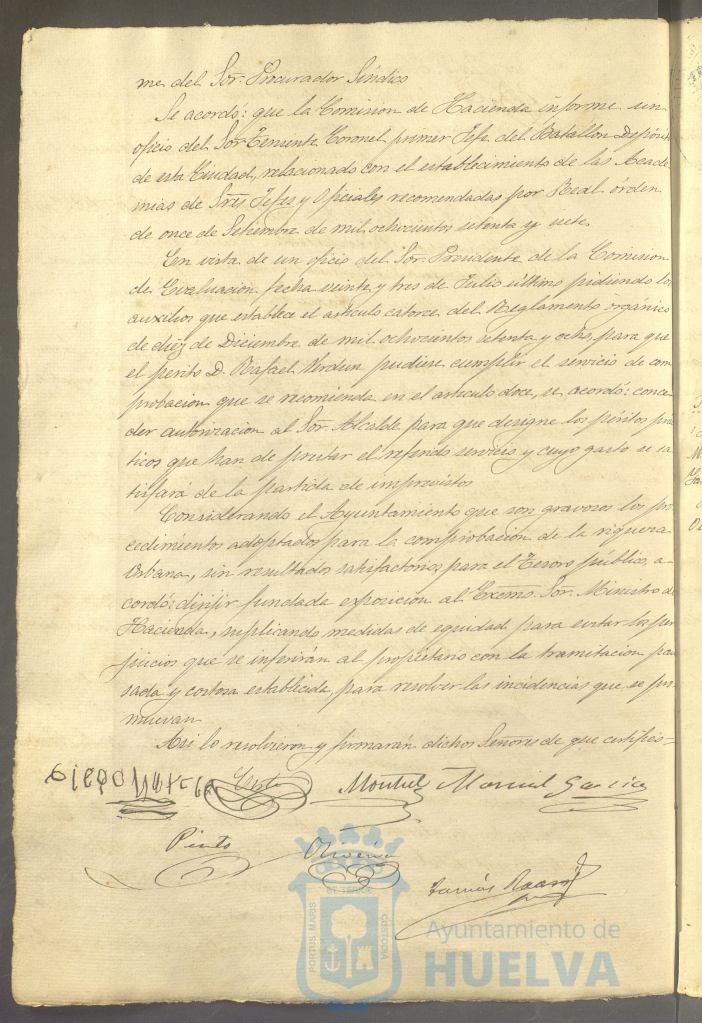 me del Sor. Procurador Síndico
Se acordó: que la Comision de Hacienda informe un
oficio del Sor Teniente Coronel primer Jefe del Batallon Depósito
de esta Ciudad, relacionado con el establecimiento de las Acade
mias de Sres Jefes y Oficiales recomendadas por Real órden
de once de Setiembre de mil ochocientos setenta y siete.
En vista de un oficio del Sor. Presidente de la Comision
de Evaluacion fecha veinte y tres de Julio último pidiendo los
auxilios que establece el artículo catorce del Reglamento orgánico
de diez de Diciembre de mil ochocientos setenta y ocho, para que
el perito D. Rafael Verdun pudiese cumplir el servicio de com
probacion que se recomienda en el artículo doce, se acordó: conce
der autorizacion al Sor. Alcalde para que designe los peritos prác
ticos que han de prestar el referido servicio y cuyo gasto se sa
tisfará de la partida de imprevistos
Considerando el Ayuntamiento que son gravosos los pro
cedimientos adoptados para la comprobacion de la riqueza
Urbana, sin resultados satisfactorios para el Tesoro público, a
cordó: dirijir fundada exposicion al Exemo. Sor. Ministro de
Hacienda, suplicando medidas de equidad para evitar los per
juicios que se inferirán al propietario con la tramitacion pau
sada y costosa establecida, para resolver las incidencias que se pro
muevan
Asi lo resolvieron y firmarán dichos Señores de que certifico=
Montiel Manuel Garcia
Pinto Oliveira
Tomás
PORTUS MARIS ET TERRAE CUSTODIA
Ayuntamiento de
HUELVA